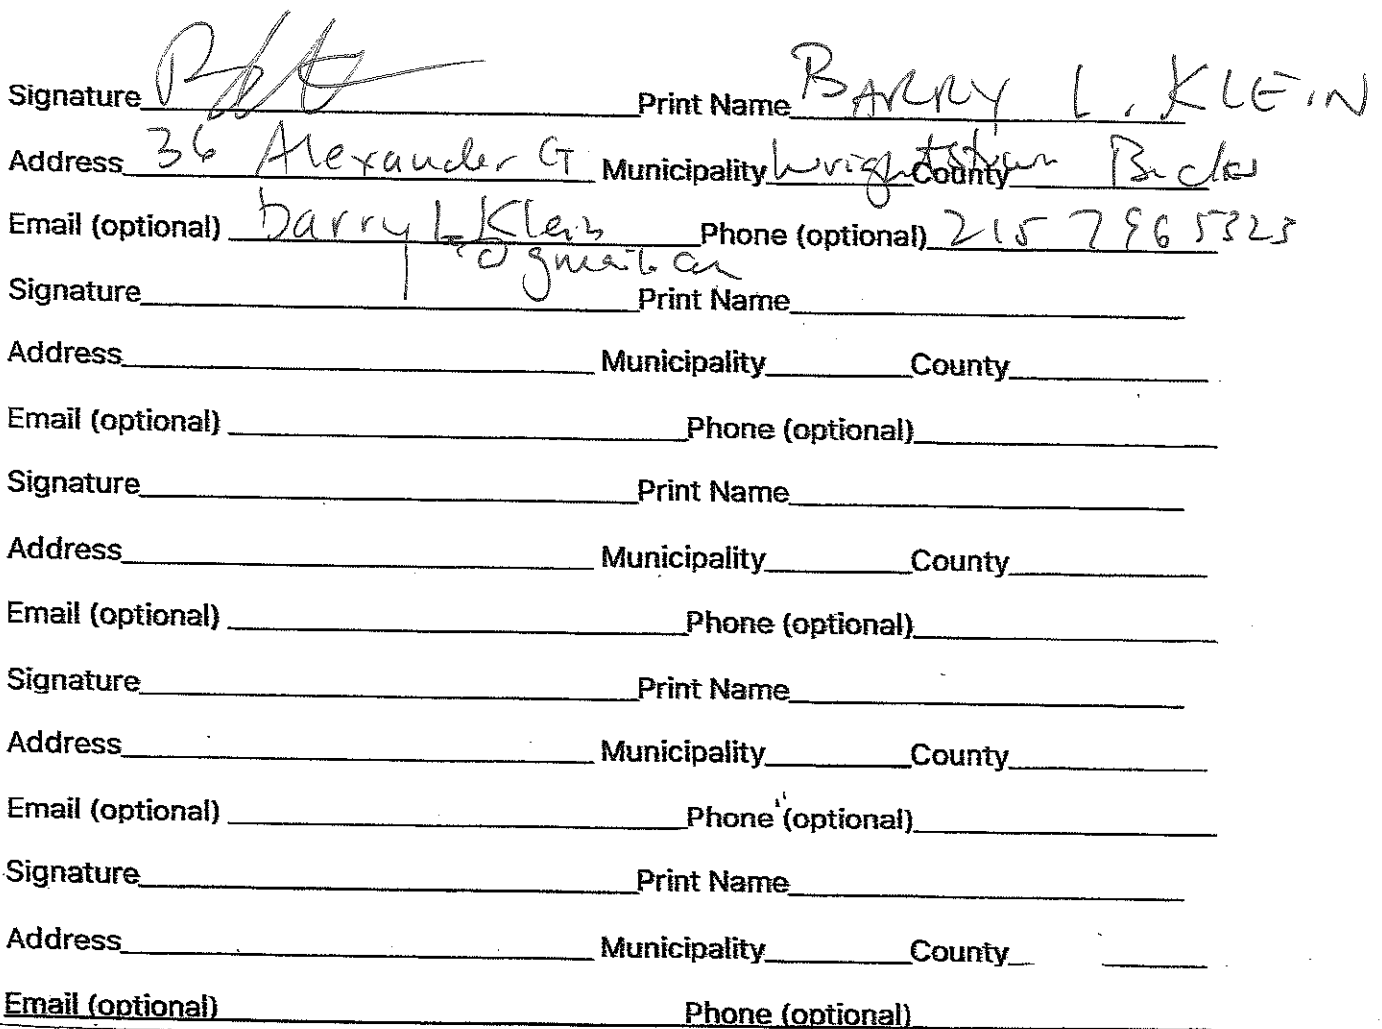 Signature Print Name BARRY L. KLEIN
Address 36 Alexander Ct Municipality Wrightstown County Bucks
Email (optional) barryLKlein Phone (optional) 215 796 5323
@gmail.com
Signature Print Name
Address Municipality County
Email (optional) Phone (optional)
Signature Print Name
Address Municipality County
Email (optional) Phone (optional)
Signature Print Name
Address Municipality County
Email (optional) Phone (optional)
Signature Print Name
Address Municipality County
Email (optional) Phone (optional)